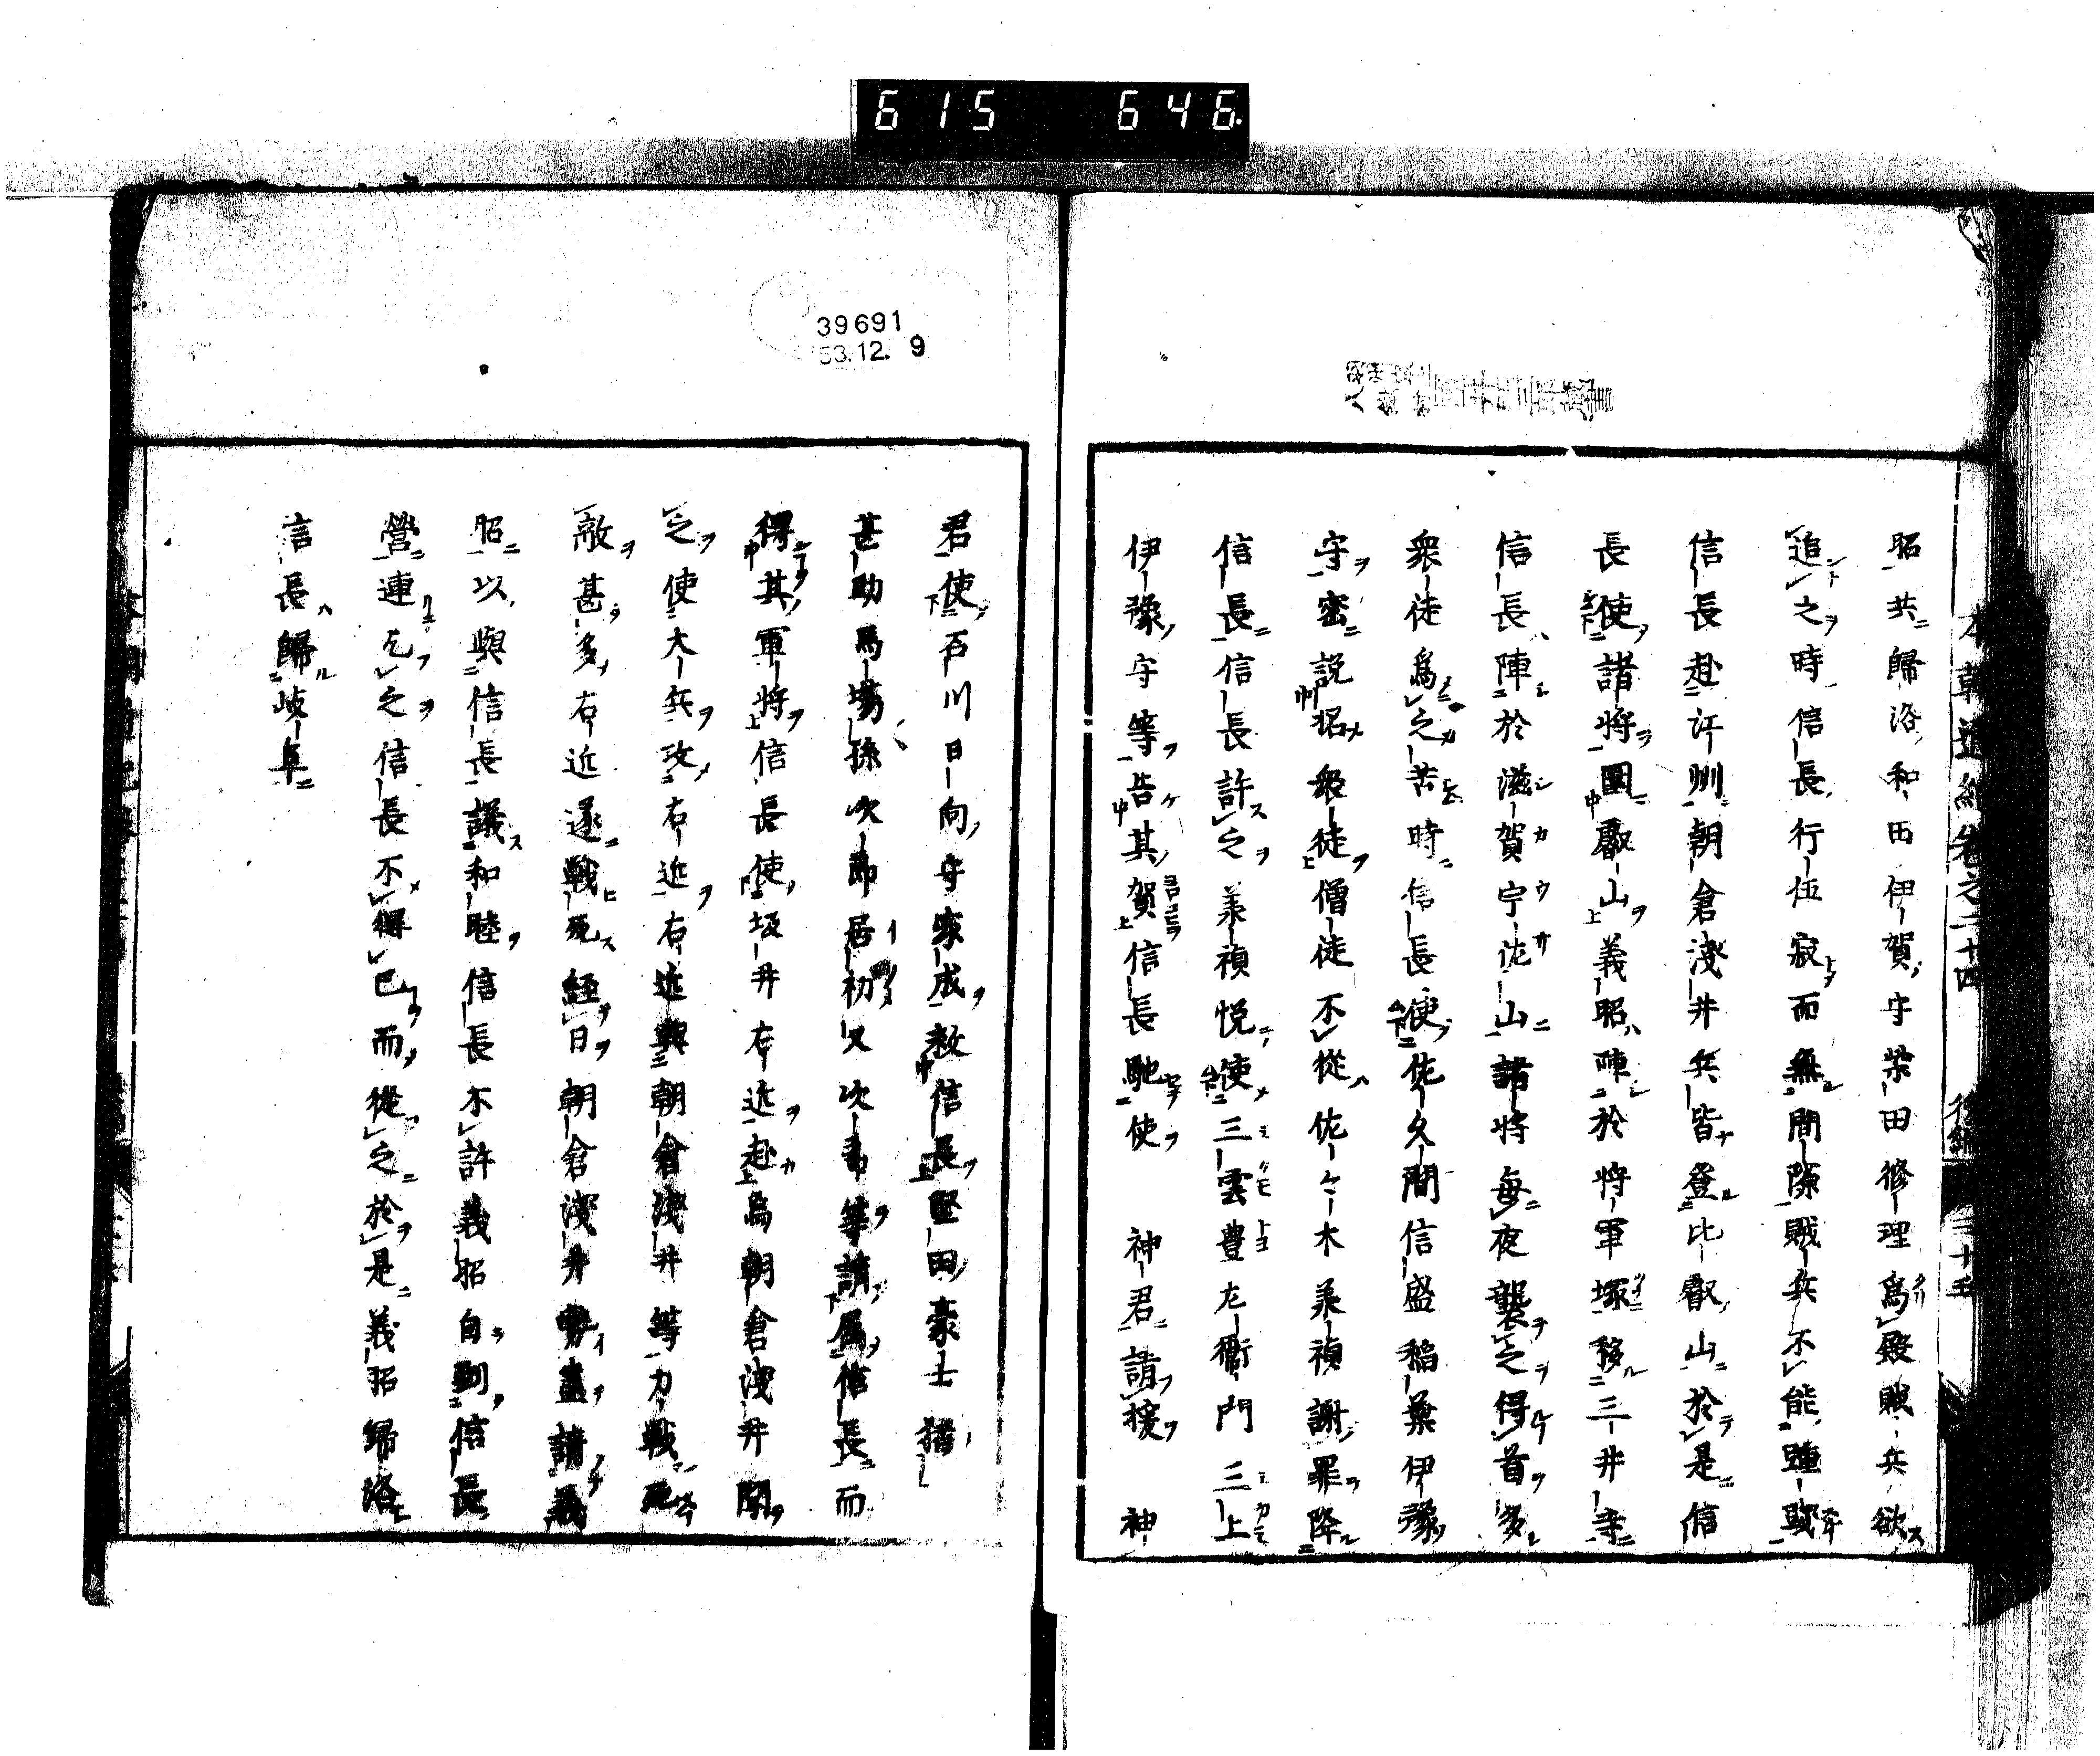 615 646
本朝通紀卷之二十四 後編 三十五
昭共歸洛和田伊賀守柴田修理爲殿賊兵欲
追之時信長行伍寂而無間隙賊兵不能踵戰
信長赴江州朝倉淺井兵皆登比叡山於是信
長使諸將圍叡山義昭陣於將軍塚移三井寺
信長陣於滋賀宇佐山諸將每夜襲之得首多
衆徒爲之苦時信長使佐久間信盛稲葉伊豫
守密説招衆徒僧徒不從佐々木義禎謝罪降
信長信長許之義禎悦使三雲豊左衞門三上
伊豫守等告其賀信長馳使 神君請援 神
君使石川日向守家成救信長堅田豪士猪
甚助馬場孫次郎居初又次郎等請屬信長而
得其軍將信長使坂井右近赴焉朝倉淺井聞
之使大兵攻右近右近與朝倉淺井等力戰死
敵甚多右近遂戰死經日朝倉淺井勢盡請義
昭以與信長議和睦信長不許義昭自到信長
營連乞之信長不得已而從之於是義昭歸洛
信長歸岐阜
39691
53.12.9